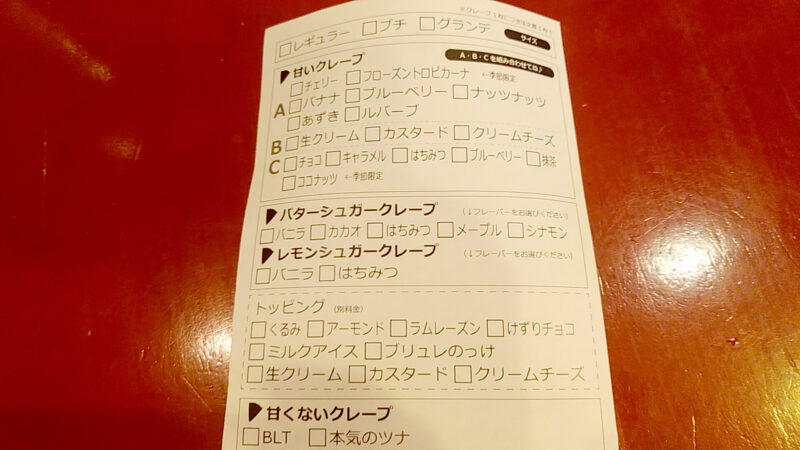 ※クレープ1枚につき注文票1枚で
□レギュラー □プチ □グランデ サイズ
甘いクレープ A・B・Cを組み合わせてね♪
A □チェリー □フローズントロピカーナ ←季節限定
□バナナ □ブルーベリー □ナッツナッツ
□あずき □ルバーブ
B □生クリーム □カスタード □クリームチーズ
C □チョコ □キャラメル □はちみつ □ブルーベリー □抹茶
□ココナッツ ←季節限定
バターシュガークレープ (↓フレーバーをお選びください)
□バニラ □カカオ □はちみつ □メープル □シナモン
レモンシュガークレープ (↓フレーバーをお選びください)
□バニラ □はちみつ
トッピング (別料金)
□くるみ □アーモンド □ラムレーズン □けずりチョコ
□ミルクアイス □ブリュレのっけ
□生クリーム □カスタード □クリームチーズ
甘くないクレープ
□BLT □本気のツナ